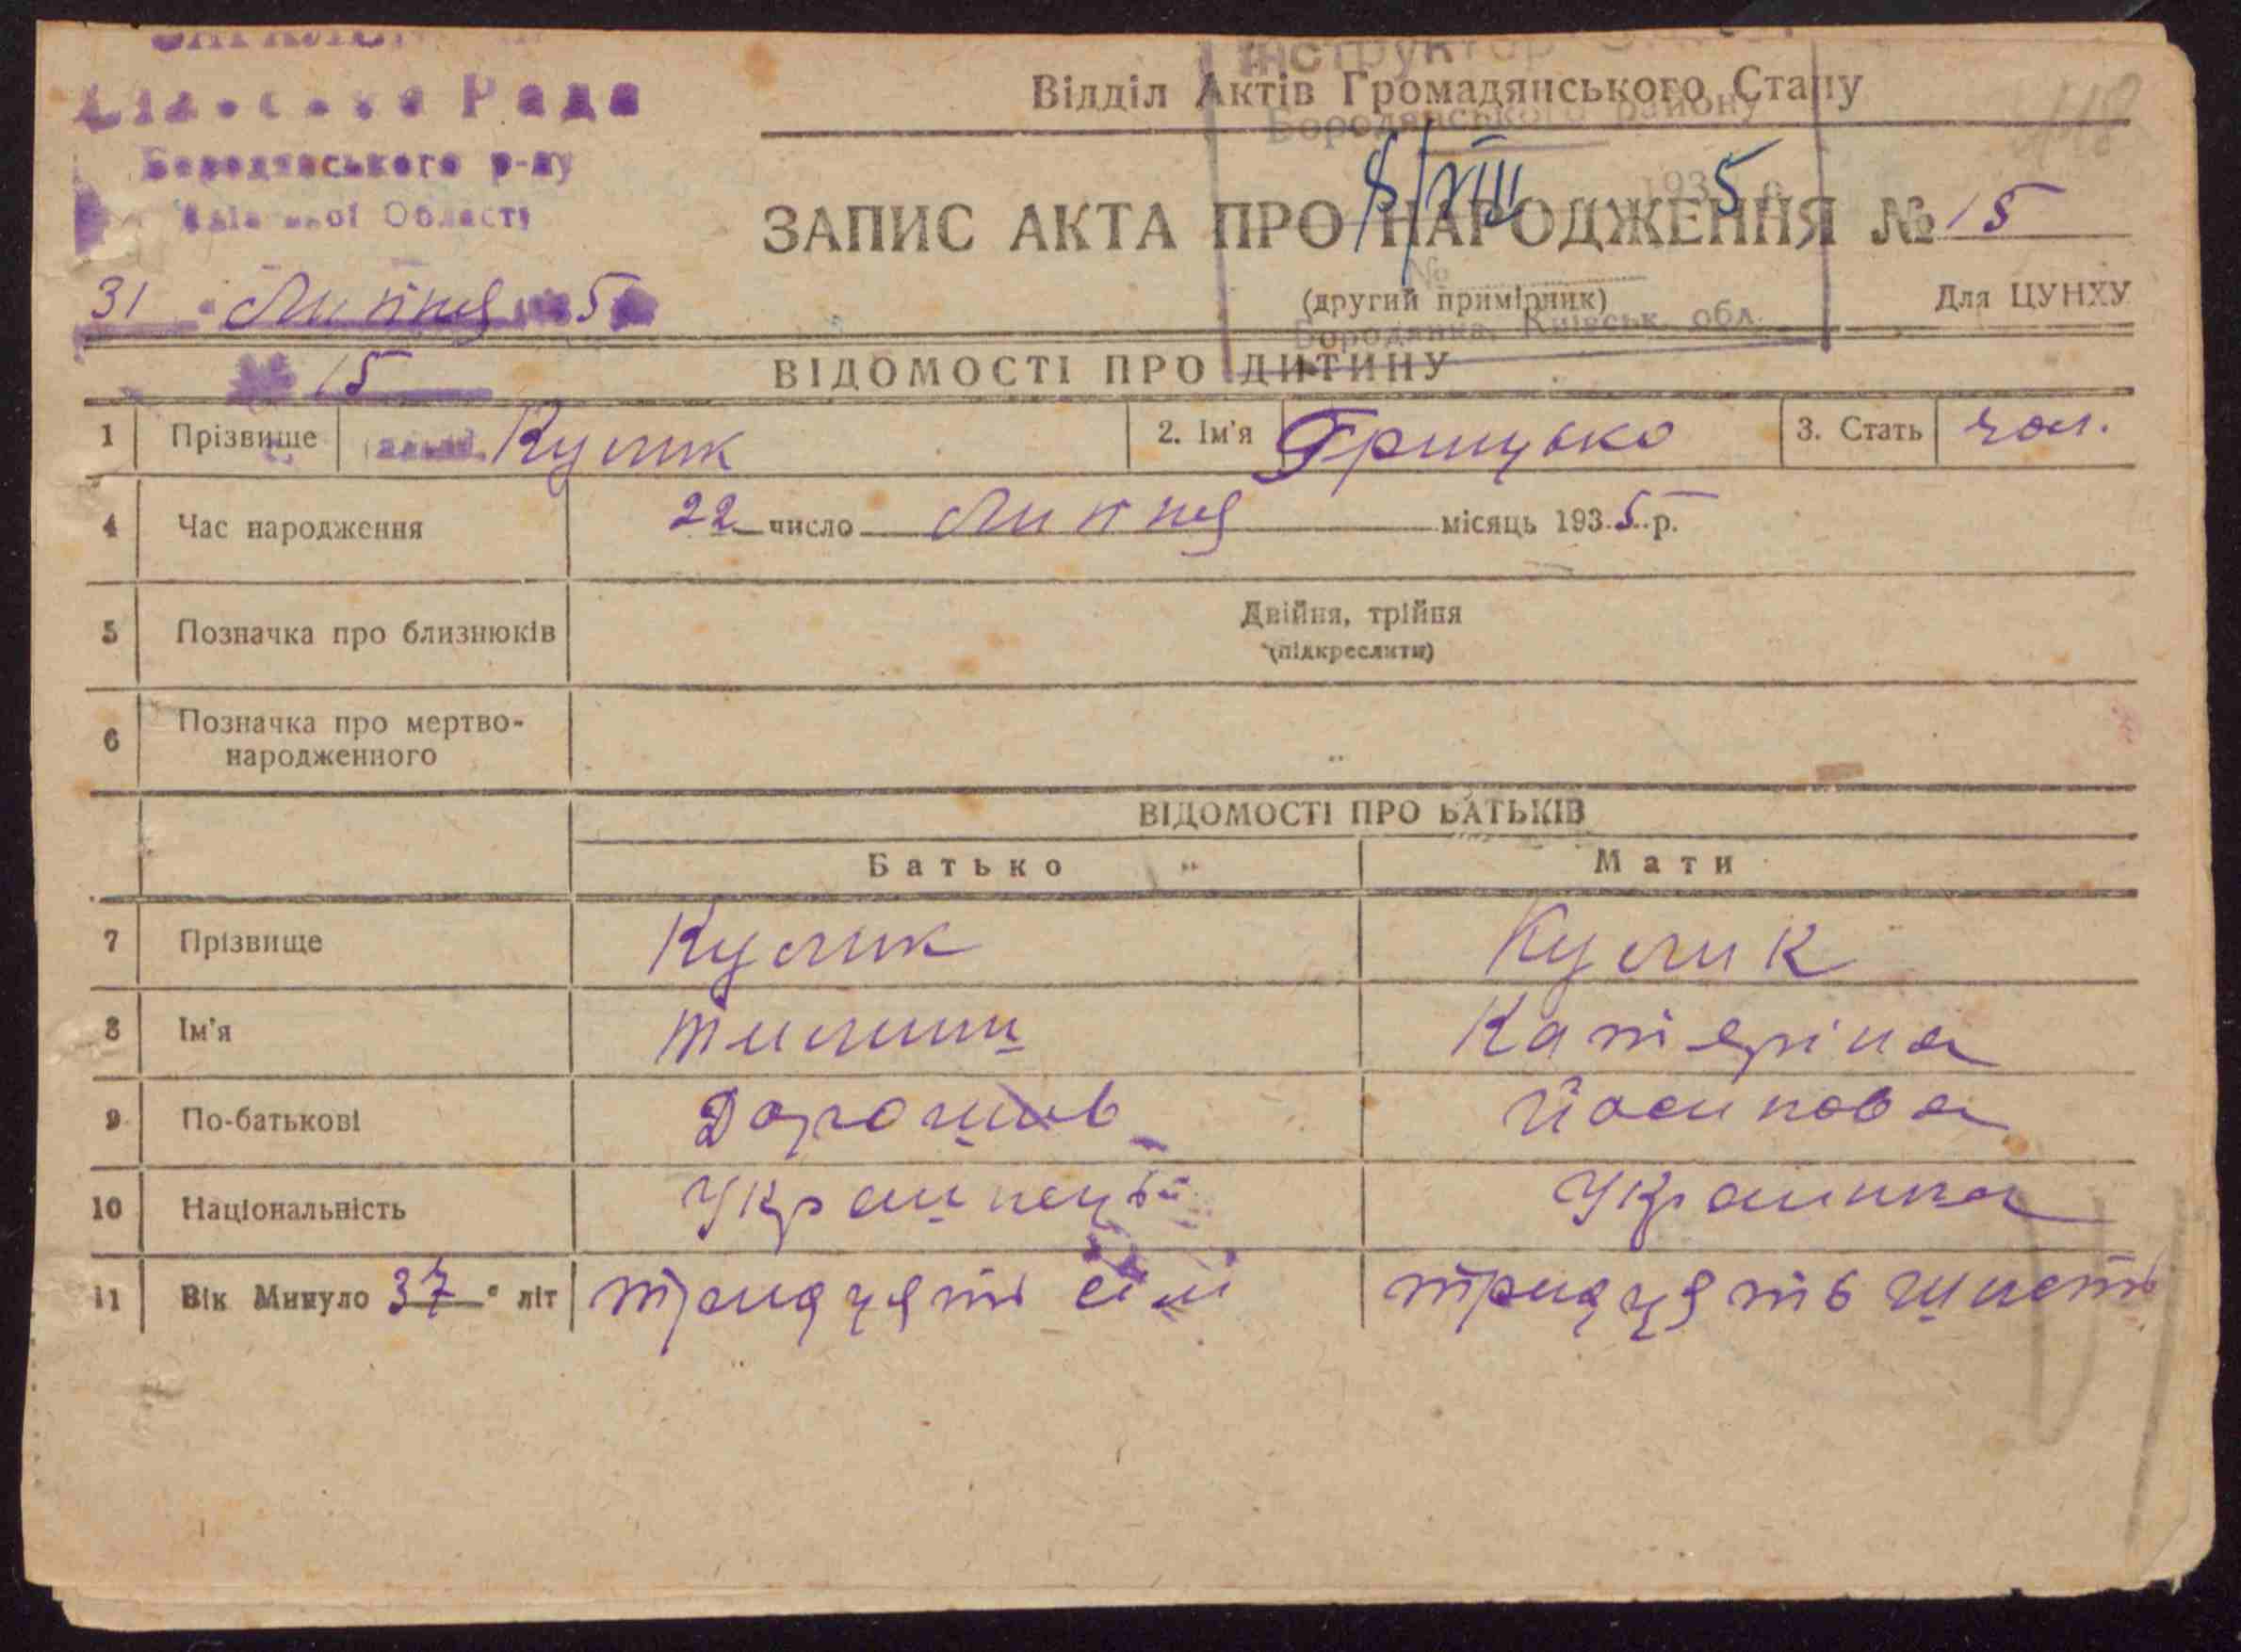 Рада
Бородянського р-ну
Області
31 Липня 5
15
Інструктор
Бородянського району
8/VIII 1935 р.
№
Бородянка, Київськ. обл.
118
Відділ Актів Громадянського Стану
ЗАПИС АКТА ПРО НАРОДЖЕННЯ № 15
(другий примірник) Для ЦУНХУ
ВІДОМОСТІ ПРО ДИТИНУ
1 Прізвище Кулик 2. Ім'я Грицько 3. Стать чол.
4 Час народження 22 число Липня місяць 1935 р.
5 Позначка про близнюків Двійня, трійня
(підкреслити)
6 Позначка про мертво-
народженного
ВІДОМОСТІ ПРО БАТЬКІВ
Батько Мати
7 Прізвище Кулик Кулик
8 Ім'я Тилиш Катеріна
9 По-батькові Дорошив Йосипова
10 Національність Украинець Украинка
11 Вік Минуло 37 літ тридцять сім тридцять шисть